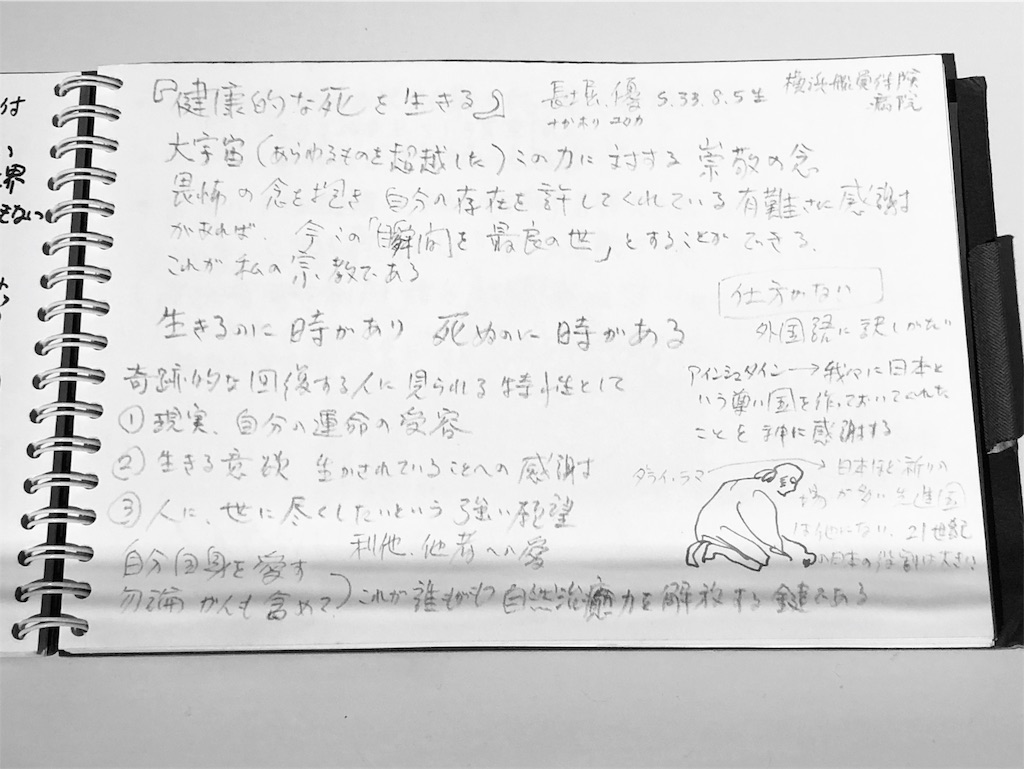 付
、
界
もない
『健康的な死を生きる』
長堀 優 S.33.8.5生
ながホリ ユタカ
横浜船員保険
病院
大宇宙(あらゆるものを超越した)この力に対する崇敬の念
畏怖の念を抱き 自分の存在を許してくれている有難さに感謝
があれば、今この「瞬間を最良の世」とすることができる。
これが私の宗教である
仕方がない
外国語に訳しがたい
生きるのに時があり 死ぬのに時がある
奇跡的な回復する人に見られる特性として
①現実、自分の運命の受容
②生きる意欲 生かされていることへの感謝
③人に、世に尽くしたいという強い願望
利他、他者への愛
自分自身を愛す
勿論 がんも含めて)これが誰もがもつ自然治癒力を解放する鍵である
アインシュタイン→我々に日本と
いう尊い国を作っておいてくれた
ことを神に感謝する
ダライ・ラマ→日本ほど祈りの
場が多い先進国
は他にない。21世紀
の日本の役割は大きい